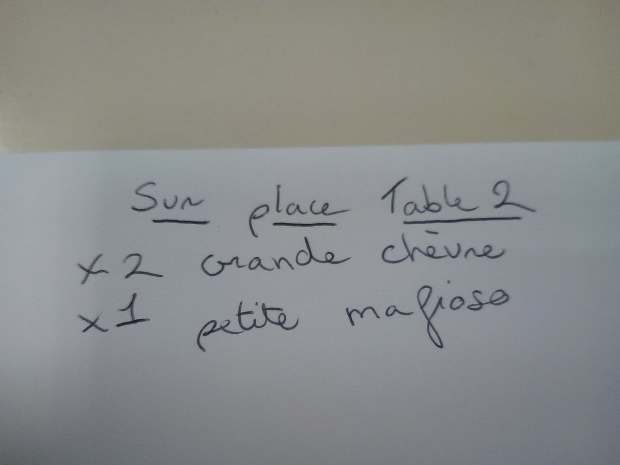 Sur place Table 2
x2 grande chèvre
x1 petite mafioso